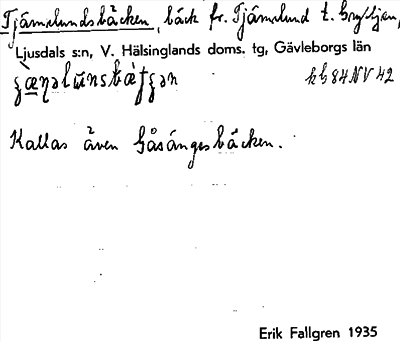 Tjärnlundsbäcken, bäck fr. Tjärnlund t. Gryttjen,
Ljusdals s:n, V. Hälsinglands doms. tg, Gävleborgs län
kb 84 NV 42
Kallas även Gåsängesbäcken.
Erik Fallgren 1935